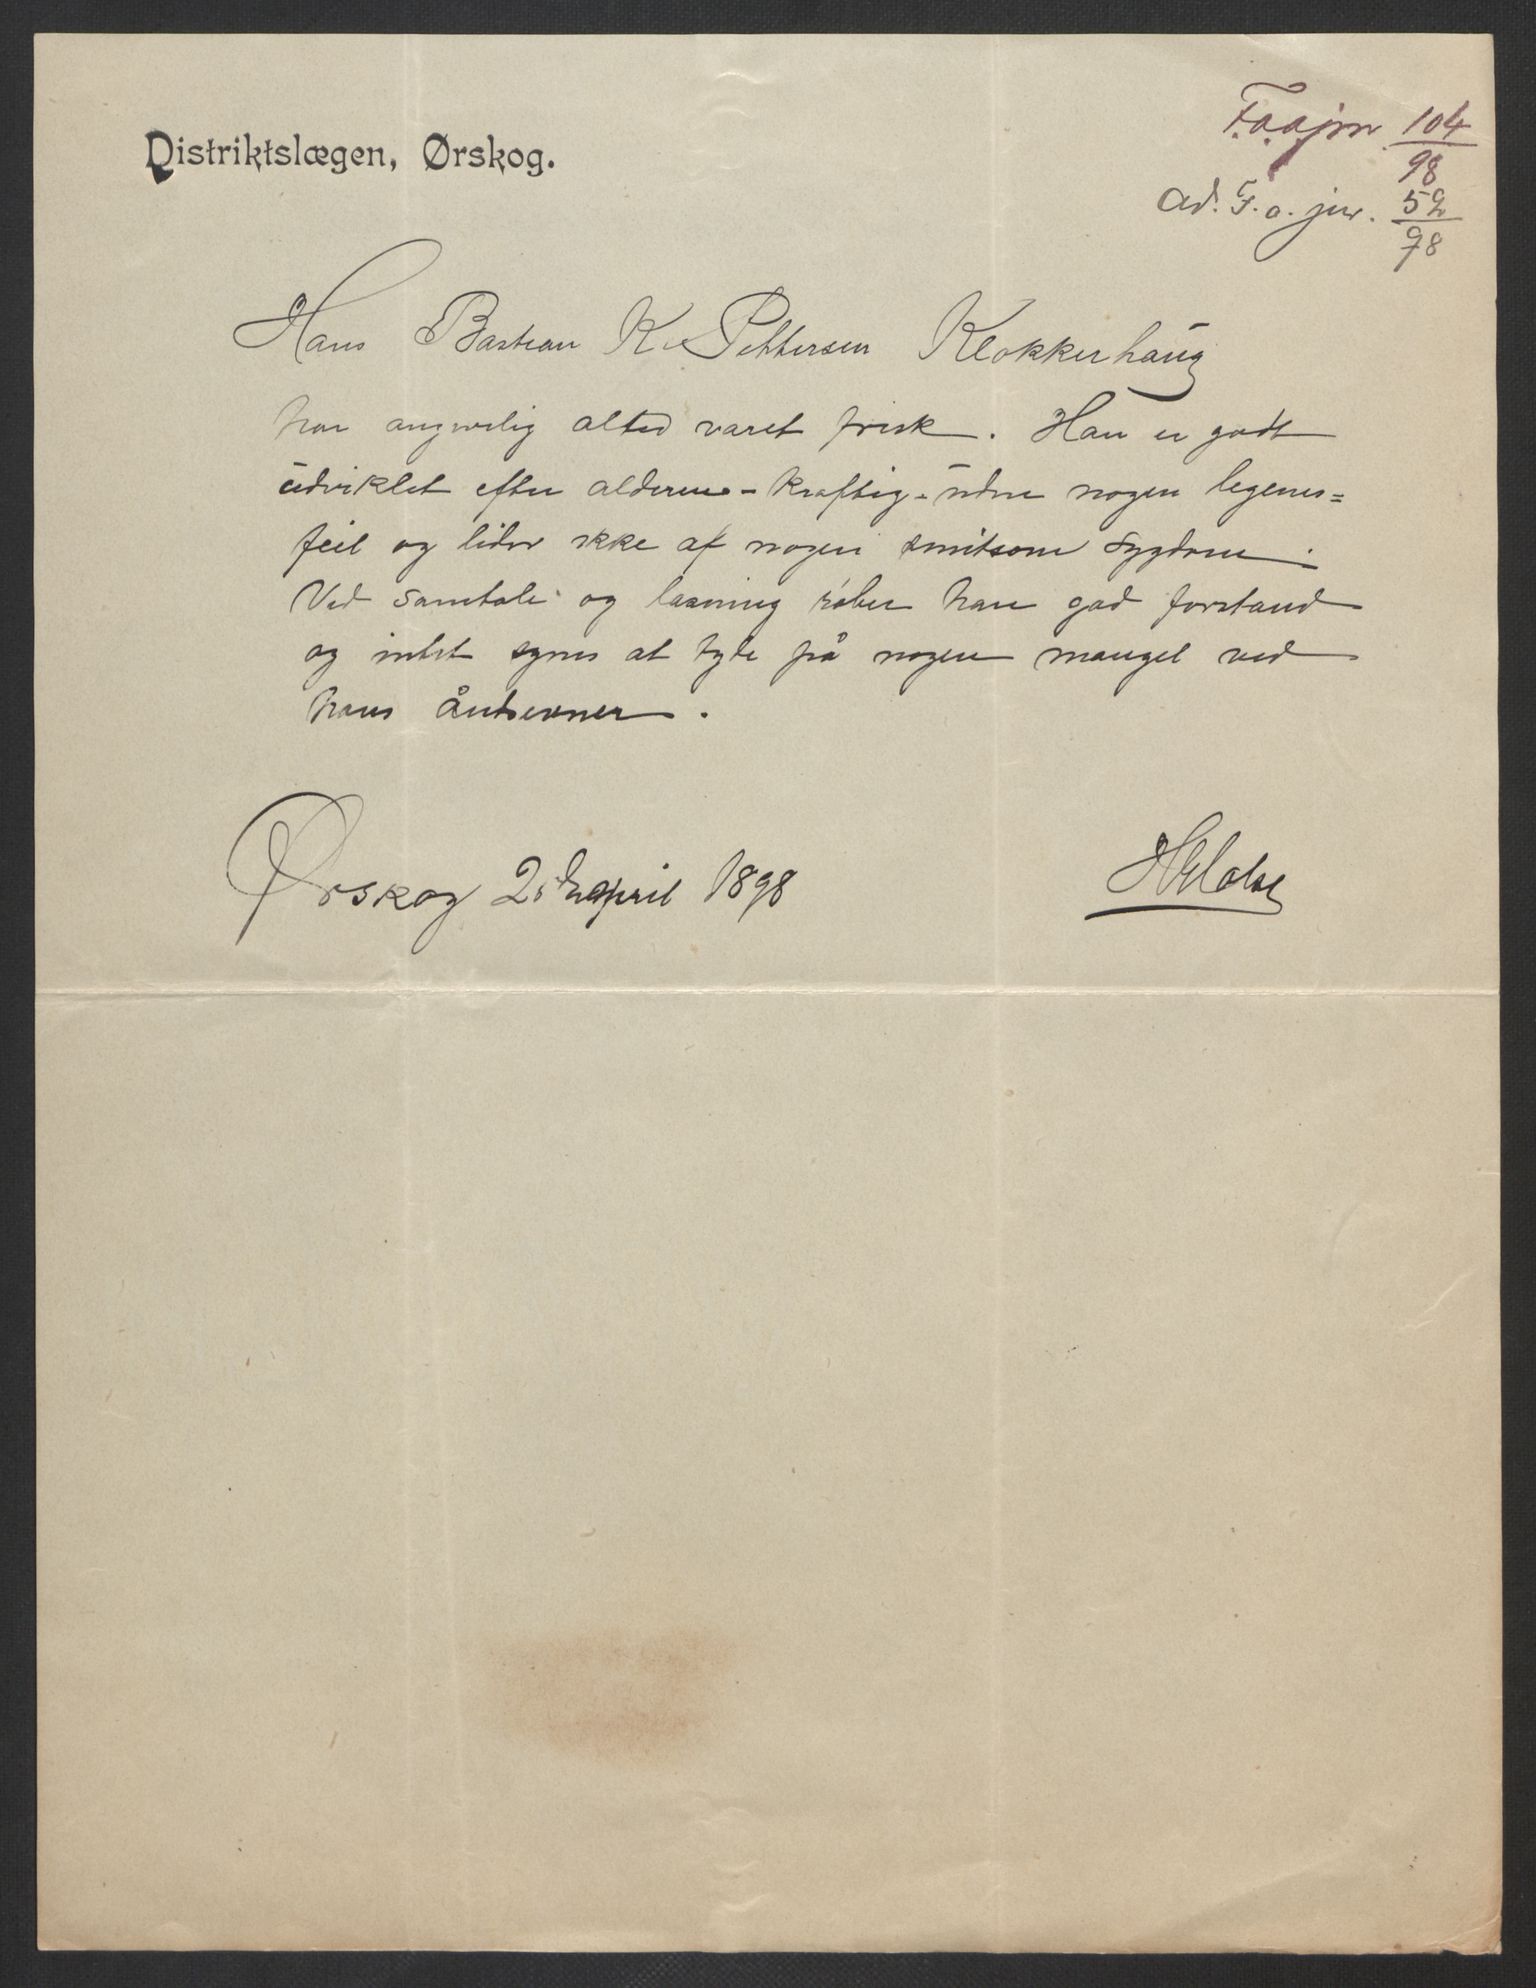 Distriktslægen, Ørskog.
F.a.a.jnr. 104/98
ad. F. a. jnr. 52/98
Hans Bastian K. Pettersen Klokkerhaug
har angivelig altid været frisk. Han er godt
udviklet efter alderen - kraftig - uden nogen legems=
feil og lider ikke af nogen smitsom sygdom.
Ved samtale og læsning røber han god forstand
og intet synes at tyde på nogen mangel ved
hans åndsevner.
Ørskog april 1898